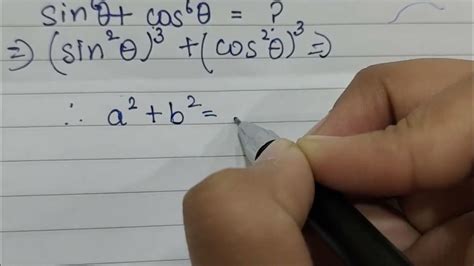 sin⁶θ + cos⁶θ = ?
⇒ (sin²θ)³ + (cos²θ)³ ⇒
∴ a² + b² =